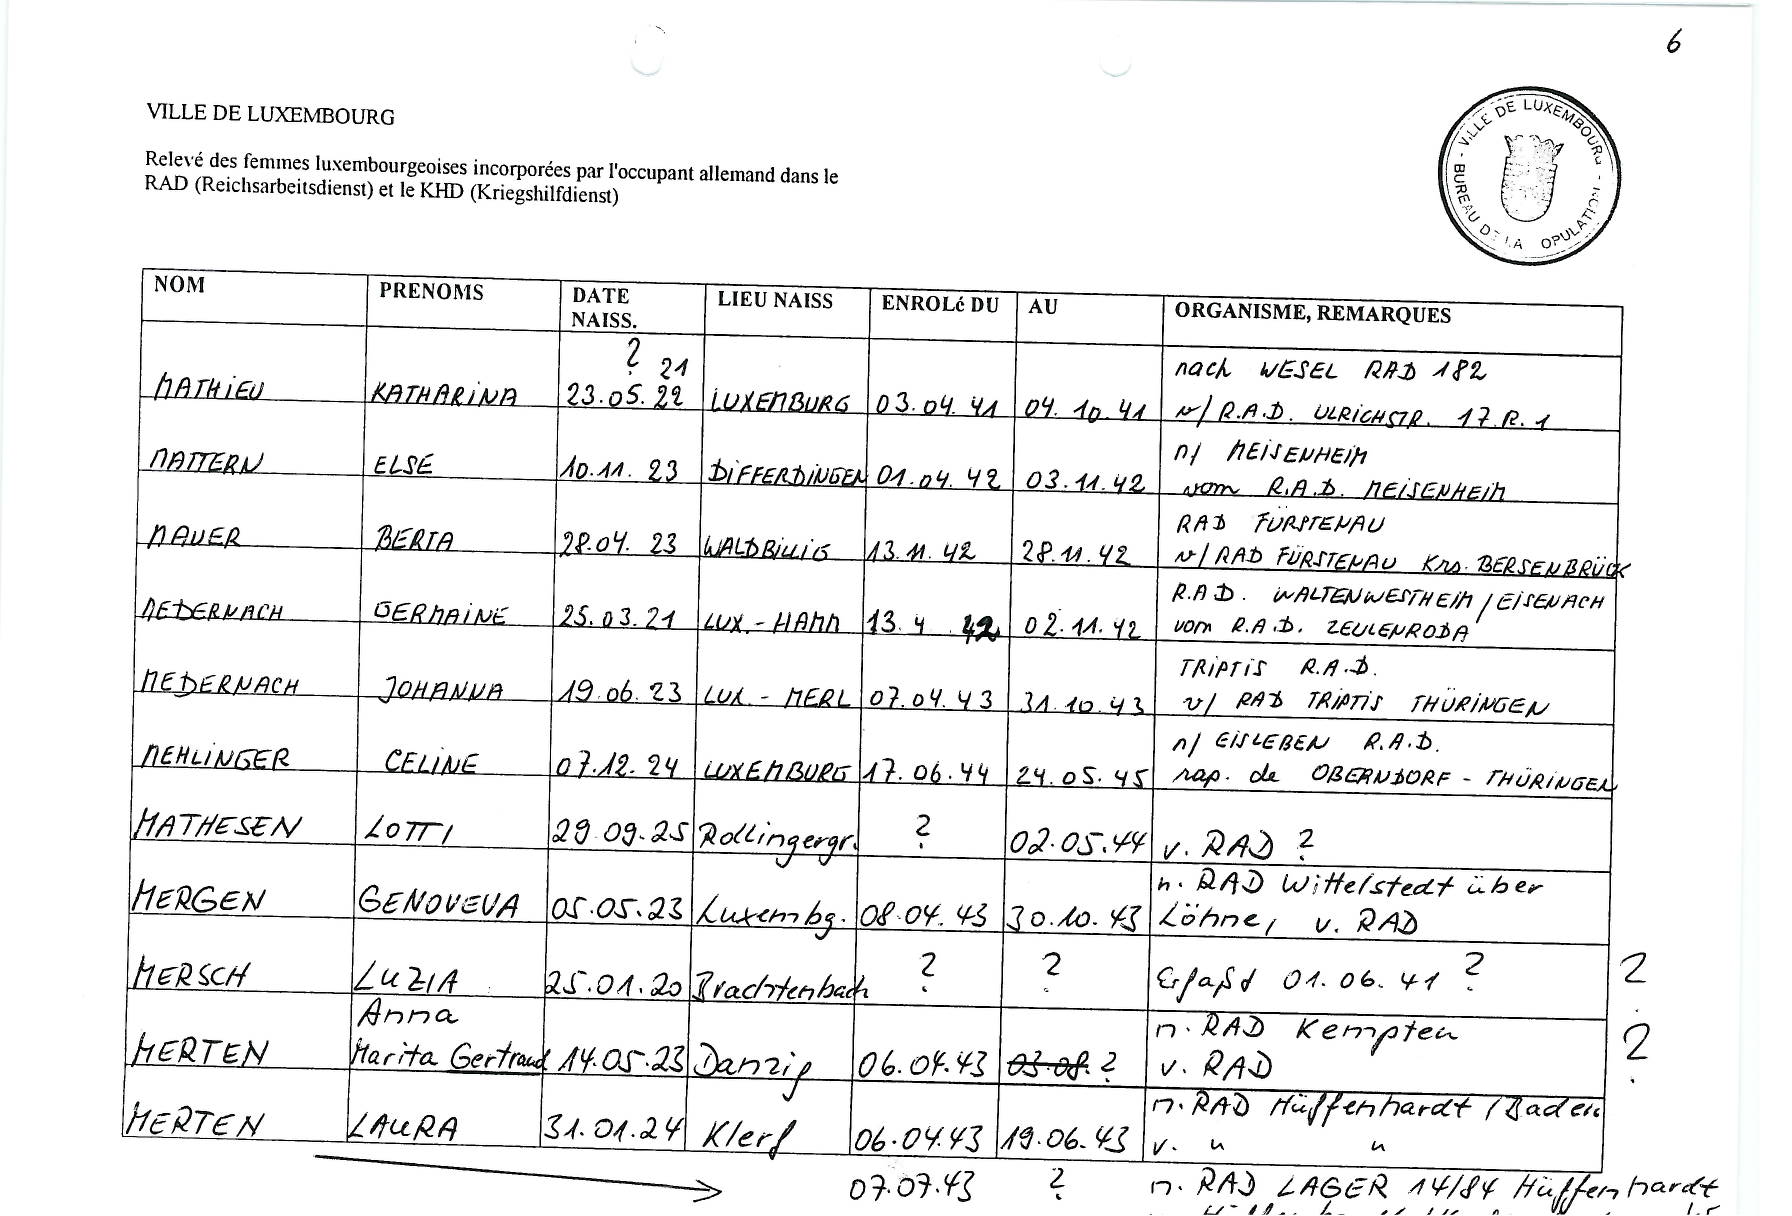 6
VILLE DE LUXEMBOURG
VILLE DE LUXEMBOURG - BUREAU DE LA OPULATION -
Relevé des femmes luxembourgeoises incorporées par l'occupant allemand dans le
RAD (Reichsarbeitsdienst) et le KHD (Kriegshilfdienst)
NOM PRENOMS DATE NAISS. LIEU NAISS ENROLé DU AU ORGANISME, REMARQUES
? 21 nach WESEL RAD 182
MATHIEU KATHARINA 23.05.22 LUXEMBURG 03.04.41 04.10.41 v/ R.A.D. ULRICHSTR. 17.R.1
n/ MEISENHEIM
MATTERN ELSE 10.11.23 DIFFERDINGEN 01.04.42 03.11.42 vom R.A.D. MEISENHEIM
RAD FÜRSTENAU
MAUER BERTA 28.04.23 WALDBILLIG 13.11.42 28.11.42 v/ RAD FÜRSTENAU Krs. BERSENBRÜCK
R.A.D. WALTENWESTHEIM / EISENACH
MEDERNACH GERMAINE 25.03.21 LUX.-HAMM 13.4.42 02.11.42 vom R.A.D. ZEULENRODA
TRIPTIS R.A.D.
MEDERNACH JOHANNA 19.06.23 LUX.-MERL 07.04.43 31.10.43 v/ RAD TRIPTIS THÜRINGEN
n/ EISLEBEN R.A.D.
MEHLINGER CELINE 07.12.24 LUXEMBURG 17.06.44 24.05.45 rap. de OBERNDORF - THÜRINGEN
MATHESEN LOTTI 29.09.25 Rollingergr. ? 02.05.44 v. RAD ?
n. RAD Wittelstedt über
MERGEN GENOVEVA 05.05.23 Luxembg. 08.04.43 30.10.43 Löhne, v. RAD
MERSCH LUZIA 25.01.20 Brachtenbach ? ? Erfaßt 01.06.41 ? ?
Anna n. RAD Kempten
MERTEN Marita Gertraud 14.05.23 Danzig 06.04.43 03.08. ? v. RAD ?
n. RAD Hüffenhardt / Baden
MERTEN LAURA 31.01.24 Klerf 06.04.43 19.06.43 v. " "
07.07.43 ? n. RAD LAGER 14/84 Hüffenhardt